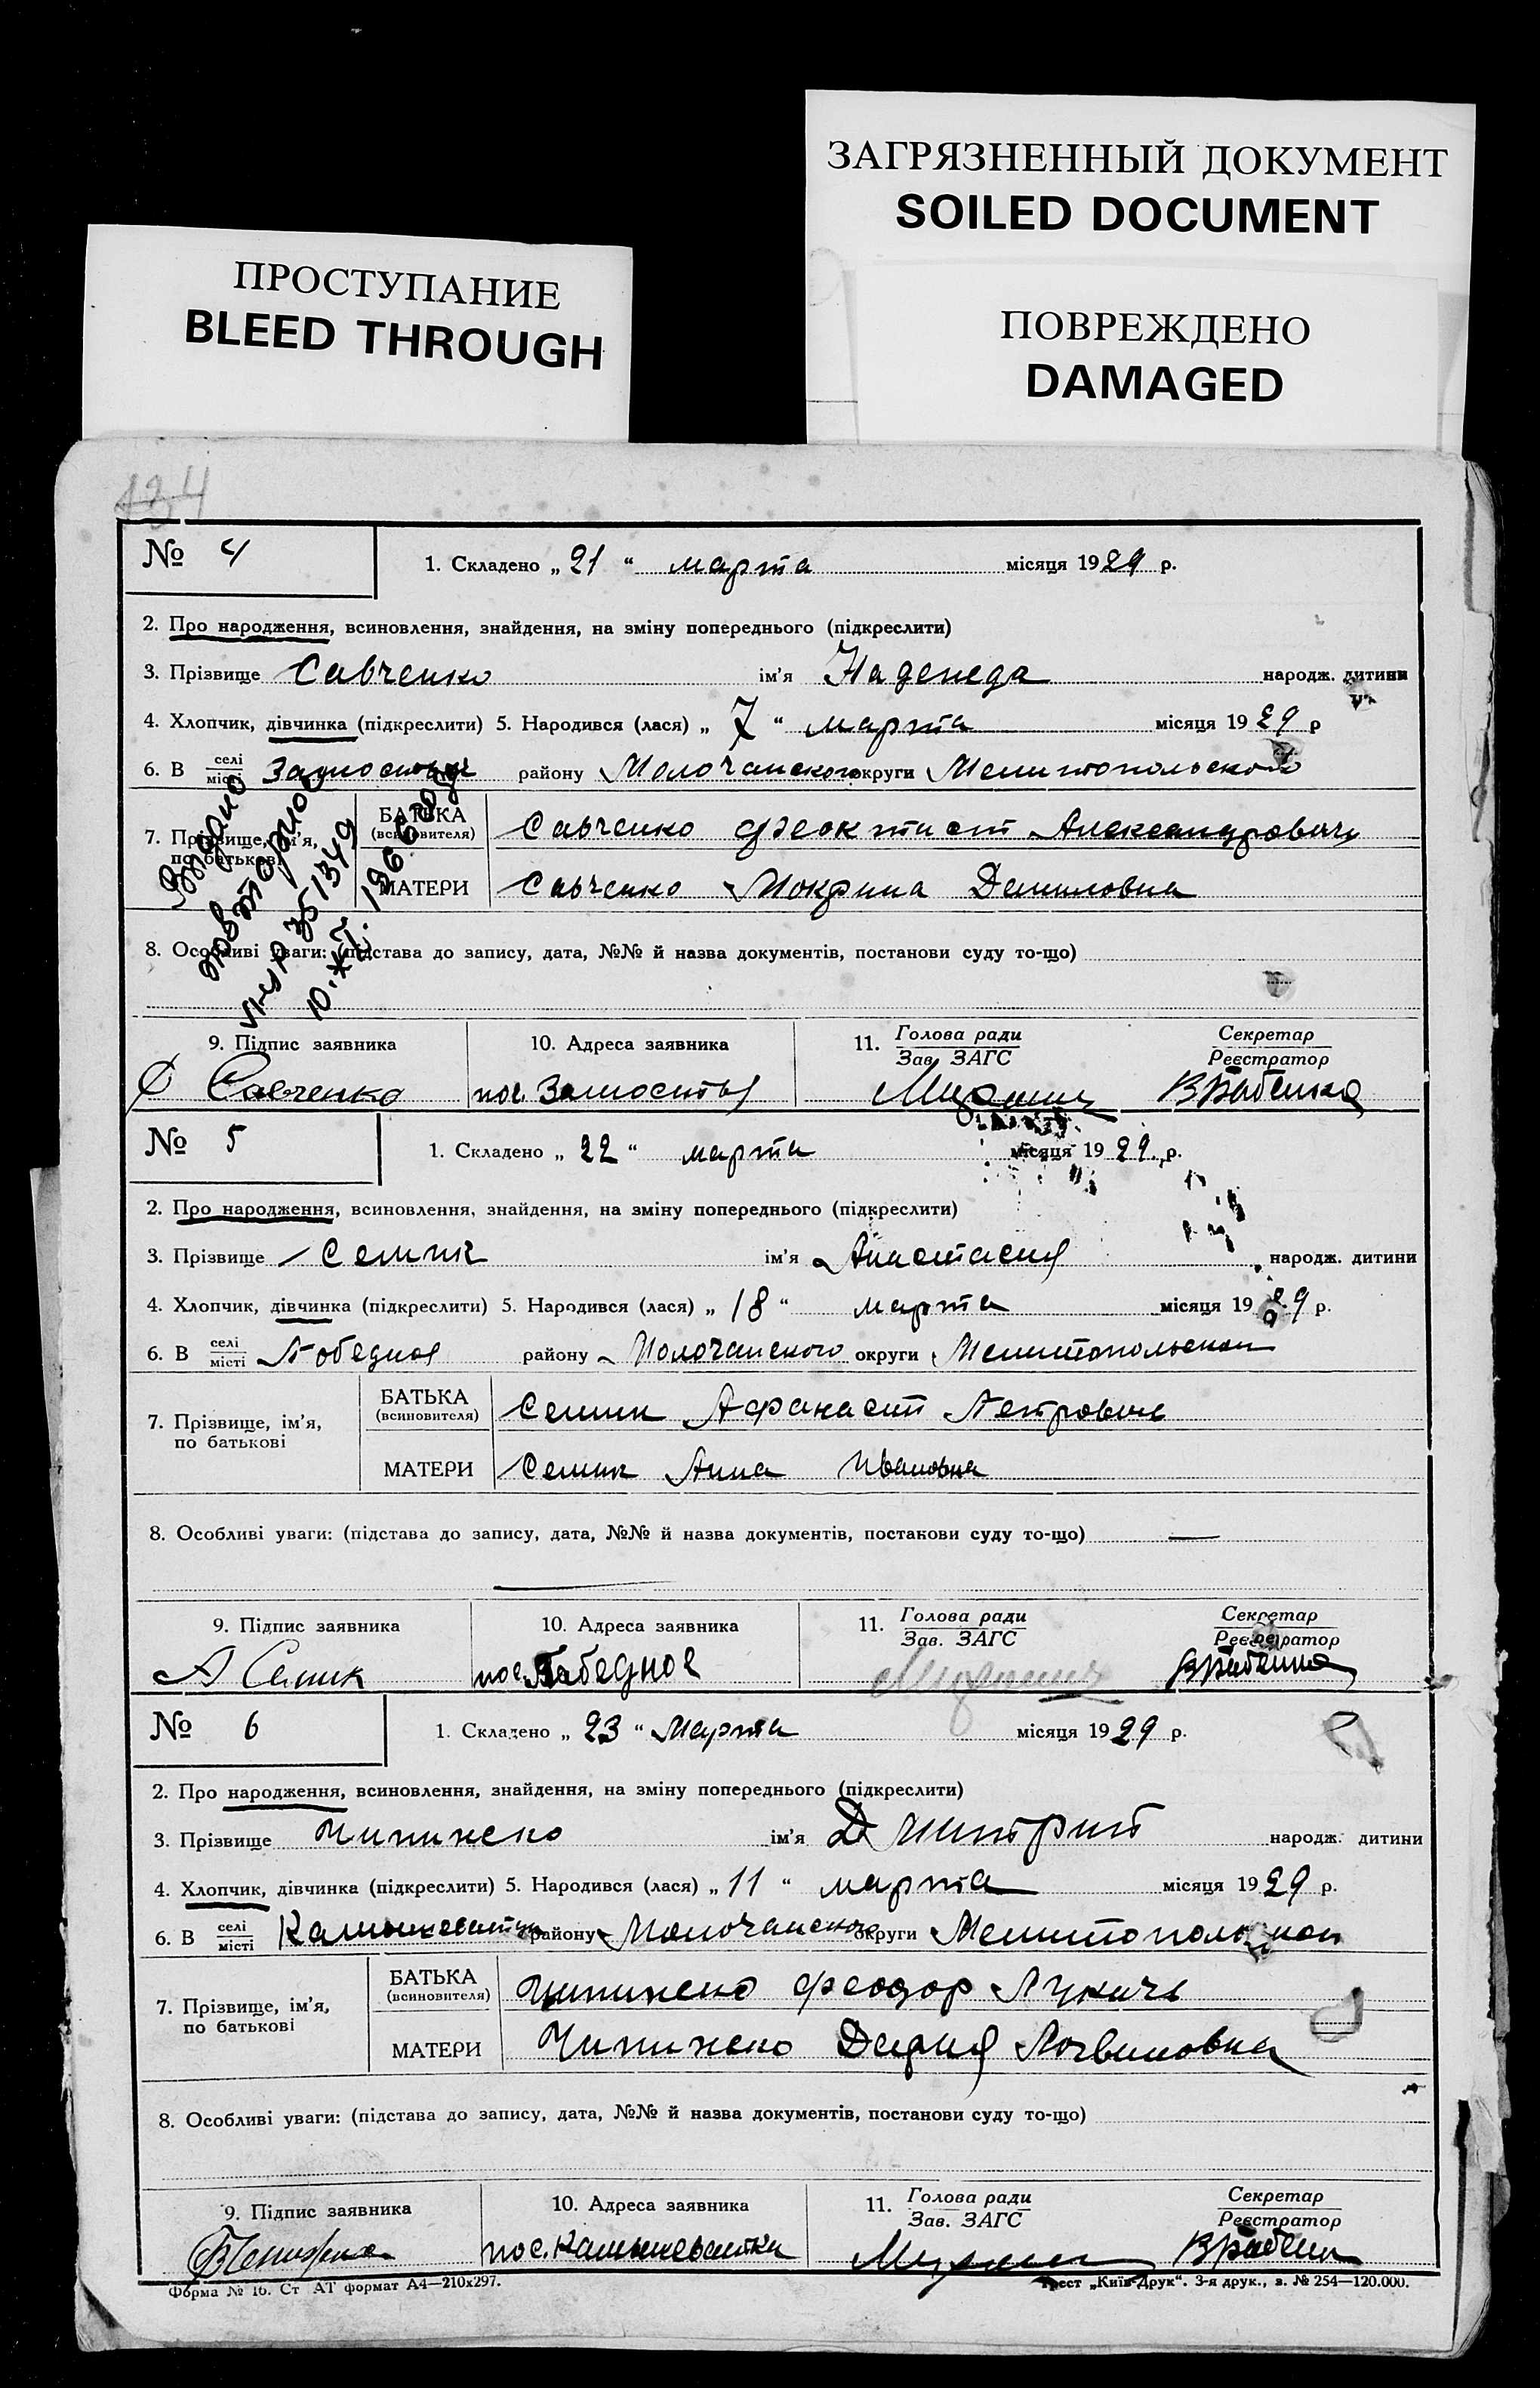 ЗАГРЯЗНЕННЫЙ ДОКУМЕНТ
SOILED DOCUMENT
ПРОСТУПАНИЕ
BLEED THROUGH
ПОВРЕЖДЕНО
DAMAGED
134
№ 4
1. Складено „ 21 “ марта місяця 1929 р.
2. Про народження, всиновлення, знайдення, на зміну попереднього (підкреслити)
3. Прізвище Савченко ім'я Надежда народж. дитини
4. Хлопчик, дівчинка (підкреслити) 5. Народився (лася) „ 7 “ марта місяця 1929 р
6. В селі місті району Молочанского округи Мелитопольской
7. Прізвище, ім'я, по батькові
БАТЬКА (всиновителя) Савченко Феоктист Александрович
МАТЕРИ Савченко Мокрина Даниловна
Выдано
повторное
351349
10.XI.1966 года
8. Особливі уваги: (підстава до запису, дата, №№ й назва документів, постанови суду то-що)
9. Підпис заявника 10. Адреса заявника 11. Голова ради Зав. ЗАГС Секретар Реєстратор
Ф Савченко пос. Замостья
№ 5
1. Складено „ 22 “ марта місяця 1929 р.
2. Про народження, всиновлення, знайдення, на зміну попереднього (підкреслити)
3. Прізвище Семик ім'я Анастасия народж. дитини
4. Хлопчик, дівчинка (підкреслити) 5. Народився (лася) „ 18 “ марта місяця 1929 р.
6. В селі місті Победная району Молочанского округи Мелитопольской
7. Прізвище, ім'я, по батькові
БАТЬКА (всиновителя) Семик Афанасий Петрович
МАТЕРИ Семик Анна Ивановна
8. Особливі уваги: (підстава до запису, дата, №№ й назва документів, постанови суду то-що)
9. Підпис заявника 10. Адреса заявника 11. Голова ради Зав. ЗАГС Секретар Реєстратор
А Семик пос. Победное
№ 6
1. Складено „ 23 “ Марта місяця 1929 р.
2. Про народження, всиновлення, знайдення, на зміну попереднього (підкреслити)
3. Прізвище Чипижко ім'я Дмитрий народж. дитини
4. Хлопчик, дівчинка (підкреслити) 5. Народився (лася) „ 11 “ марта місяця 1929 р.
6. В селі місті Камышеватки району Молочанского округи Мелитопольской
7. Прізвище, ім'я, по батькові
БАТЬКА (всиновителя) Чипижко Феодор Лукичь
МАТЕРИ Чипижко Дария Логвиновна
8. Особливі уваги: (підстава до запису, дата, №№ й назва документів, постанови суду то-що)
9. Підпис заявника 10. Адреса заявника 11. Голова ради Зав. ЗАГС Секретар Реєстратор
пос. Камышеватка
Форма № 16. Ст АТ формат А4—210х297.
Трест „Київ-Друк“. 3-я друк., з. № 254—120.000.